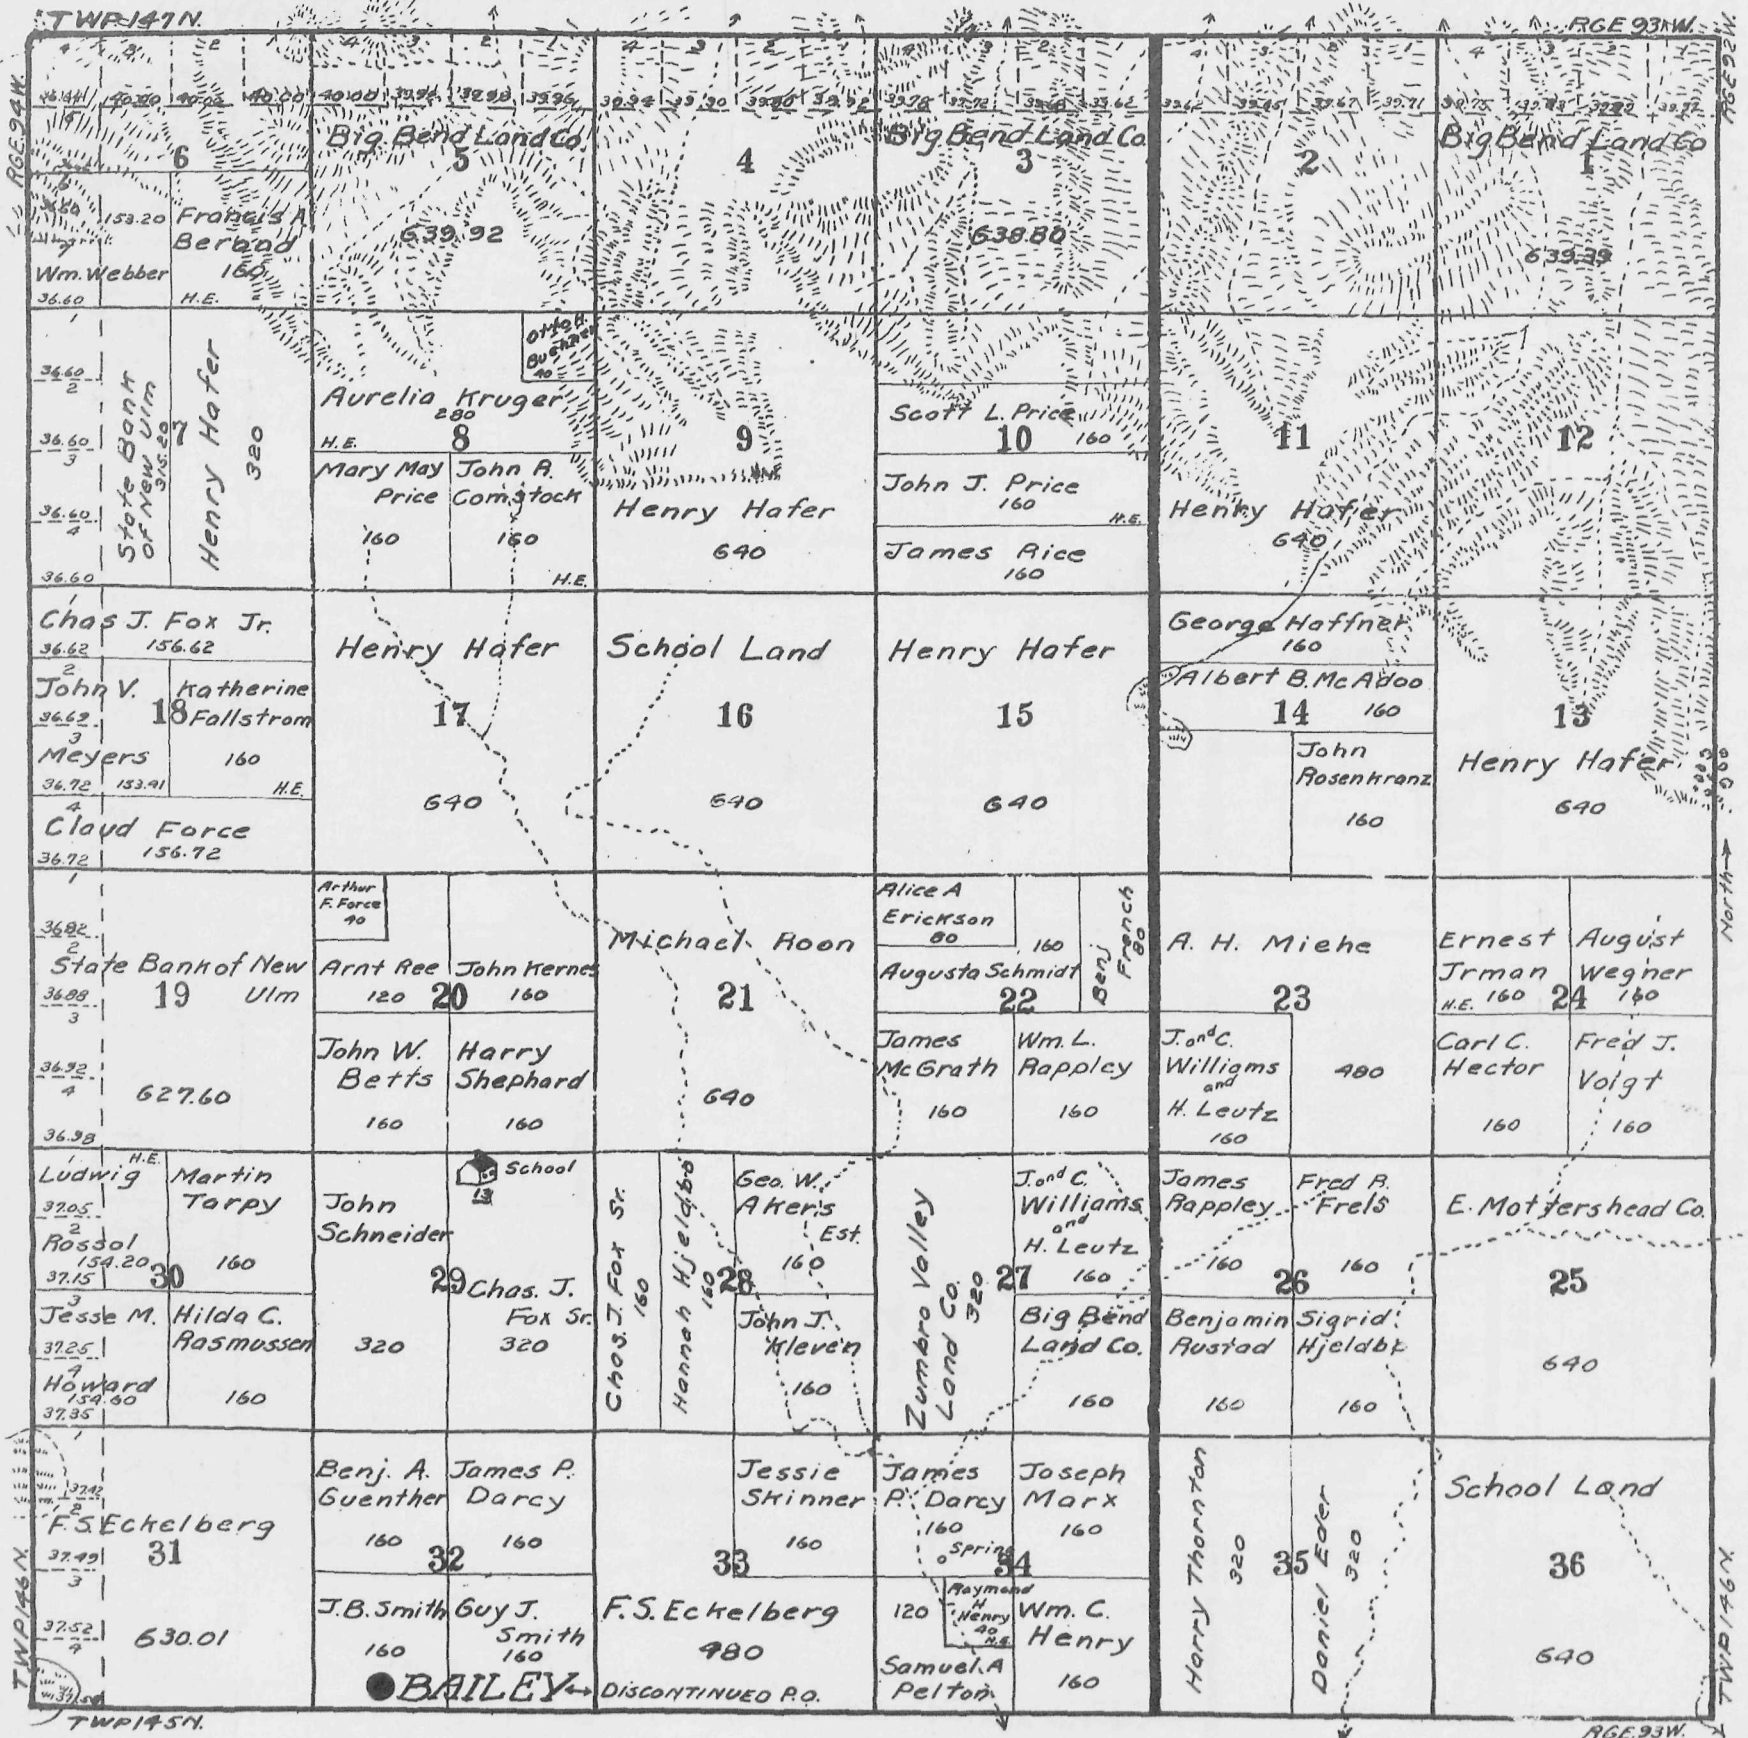 TWP.147N.
RGE 93 W.
RGE. 94 W.
4 3 2 1 4 3 2 1 4 3 2 1 4 3 2 1 4 3 2 1 4 3 2 1
40.00 40.00 40.00 39.96 39.94 39.90 39.92 39.78 39.62 39.62 39.67 39.71 39.75
6
153.20
Francis A.
160
H.E.
Wm. Webber
36.60
Big Bend Land Co.
5
639.92
4
Big Bend Land Co.
3
638.80
2
Big Bend Land Co
1
639.39
1
36.60
2
36.60
3
36.60
4
36.60
State Bank
of New Ulm
315.20
7
Henry Hafer
320
Otto H.
40
Aurelia Kruger
280
H.E.
8
Mary May
Price
160
John R.
Comstock
160
H.E.
9
Henry Hafer
640
Scott L. Price
10
160
John J. Price
160
H.E.
James Rice
160
11
Henry Hafer
640
12
1
Chas J. Fox Jr.
36.62
156.62
2
John V.
36.62
3
Meyers
36.72
153.91
18
Katherine
Fallstrom
160
H.E.
4
Claud Force
36.72
156.72
Henry Hafer
17
640
School Land
16
640
Henry Hafer
15
640
George Haffner
160
Albert B. McAdoo
14
160
John
Rosenkranz
160
13
Henry Hafer
640
North
1
36.82
2
State Bank of New
Ulm
36.88
19
3
36.92
4
627.60
36.98
Arthur
F. Force
40
Arnt Ree
120
20
John Kernes
160
John W.
Betts
160
Harry
Shephard
160
Michael Roon
21
640
Alice A
Erickson
80
160
Augusta Schmidt
22
Benj
French
80
James
McGrath
160
Wm. L.
Rappley
160
A. H. Miehe
23
J. and C.
Williams
and
H. Leutz
160
480
Ernest
Jrman
H.E. 160
24
August
Wegner
160
Carl C.
Hector
160
Fred J.
Voigt
160
1
H.E.
Ludwig
37.05
2
Rossol
154.20
37.15
30
Martin
Tarpy
160
3
Jesse M.
37.25
4
Howard
154.60
37.35
Hilda C.
Rasmussen
160
John
Schneider
320
29
School
13
Chas. J.
Fox Sr.
320
Chas. J. Fox Sr.
160
Hannah Hjeldbo
160
28
Geo. W.
Akers
Est.
160
John J.
Kleven
160
Zumbro Valley
Land Co.
320
27
J. and C.
Williams
and
H. Leutz
160
Big Bend
Land Co.
160
James
Rappley
160
26
Fred R.
Frels
160
Benjamin
Rustad
160
Sigrid
160
E. Mottershead Co.
25
640
1
37.42
2
F.S. Eckelberg
31
37.49
3
37.52
4
630.01
Benj. A.
Guenther
160
32
James P.
Darcy
160
J.B. Smith
160
Guy J.
Smith
160
BAILEY
DISCONTINUED P.O.
Jessie
Skinner
160
33
F.S. Eckelberg
480
James
P. Darcy
160
Spring
34
Joseph
Marx
160
Raymond
H
Henry
40
H.E.
120
Samuel A
Pelton
Wm. C.
Henry
160
Harry Thornton
320
35
Daniel Eder
320
School Land
36
640
TWP 146 N.
TWP 146 N
TWP 145 N.
RGE. 93 W.